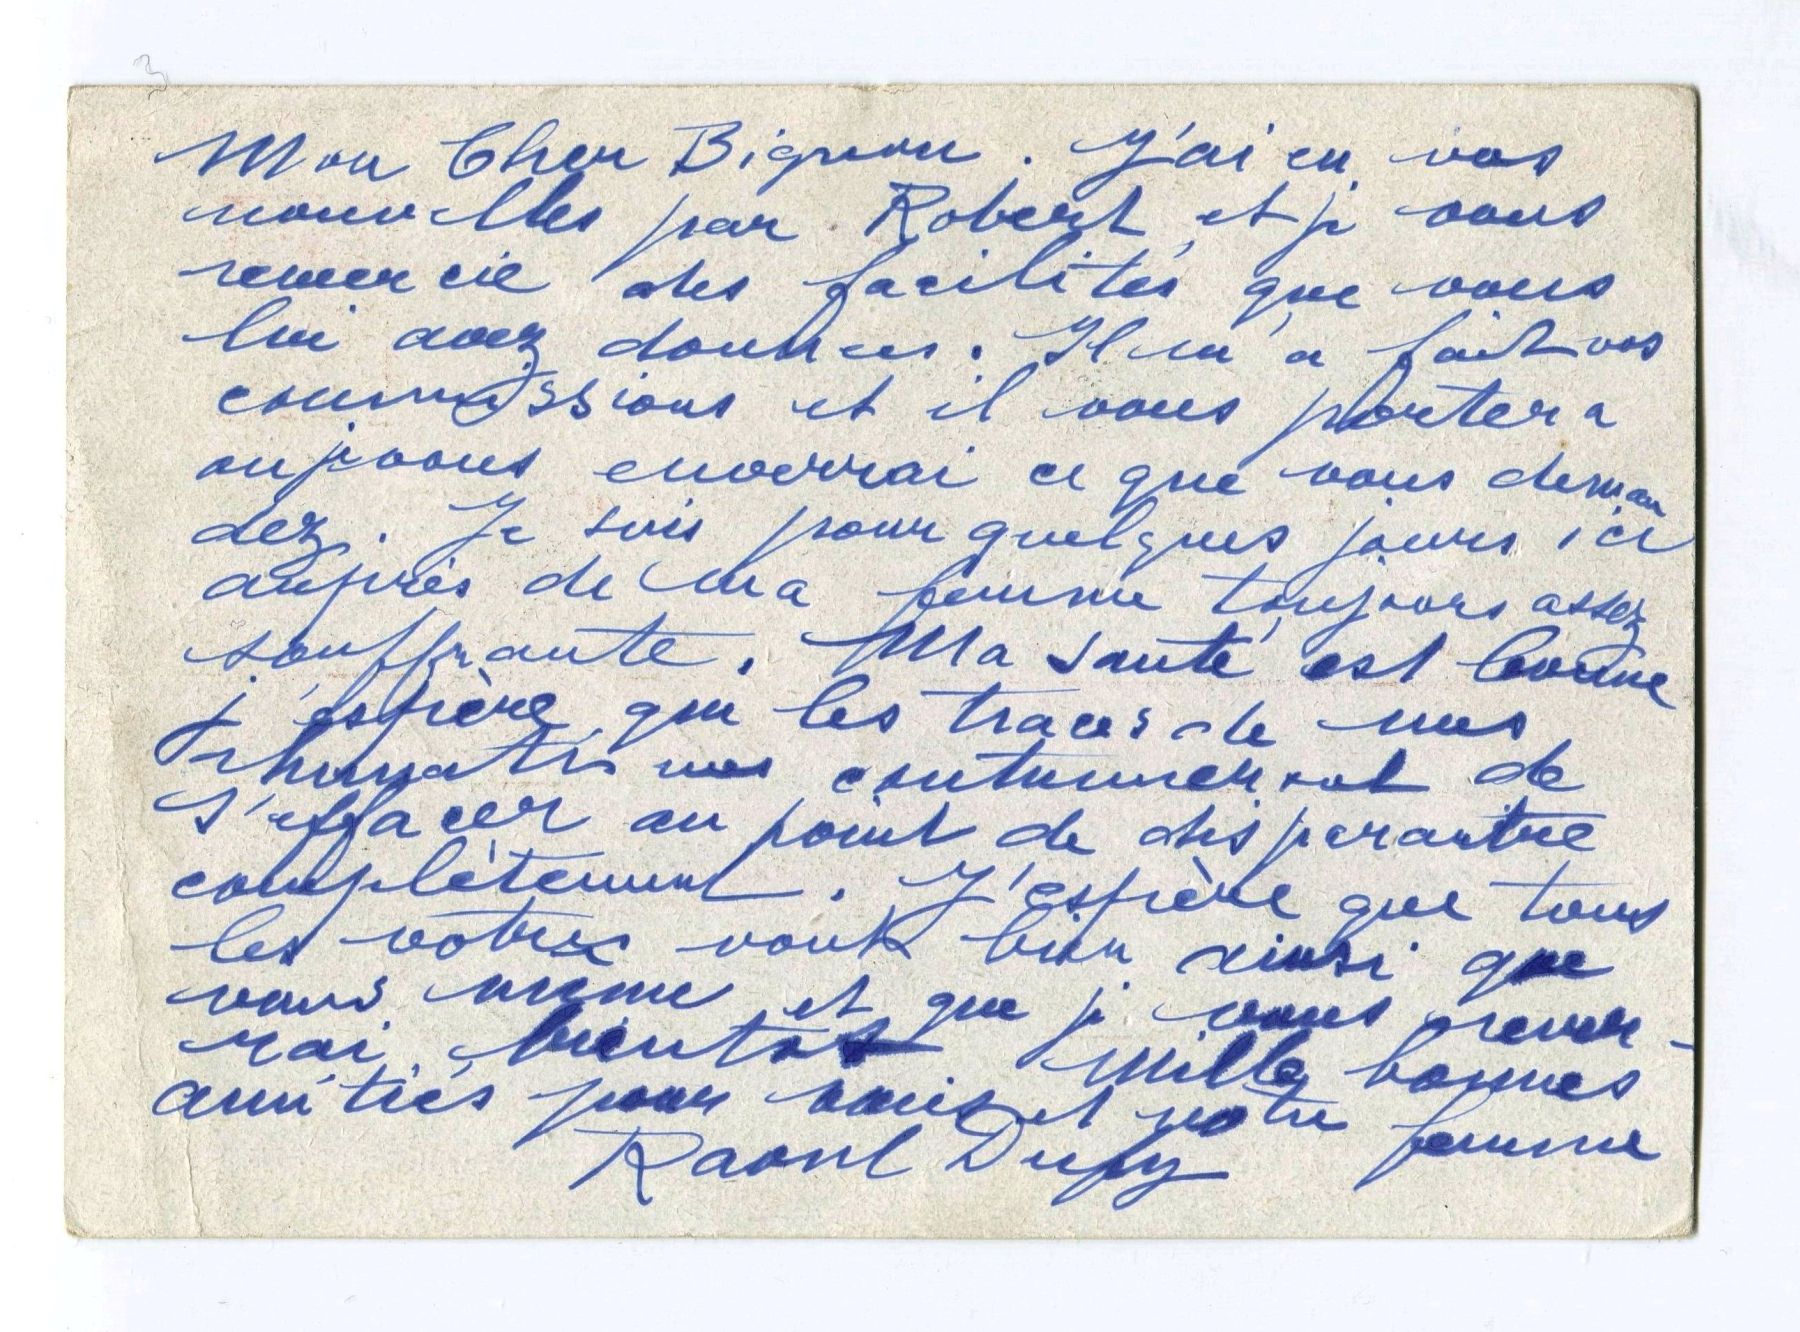 Mon Cher Bignou. J'ai eu vos
nouvelles par Robert et je vous
remercie des facilités que vous
lui avez données. Il m'a fait vos
commissions et il vous portera
ou je vous enverrai ce que vous deman
dez. Je suis pour quelques jours ici
auprès de ma femme toujours assez
souffrante. Ma santé est bonne
j'espère que les traces de mes
rhumatismes continueront de
s'effacer au point de disparaitre
complètement. J'espère que tous
les votres vont bien ainsi que
vous meme et que je vous rever-
rai bientot Mille bonnes
amitiés pour vous et votre femme
Raoul Dufy